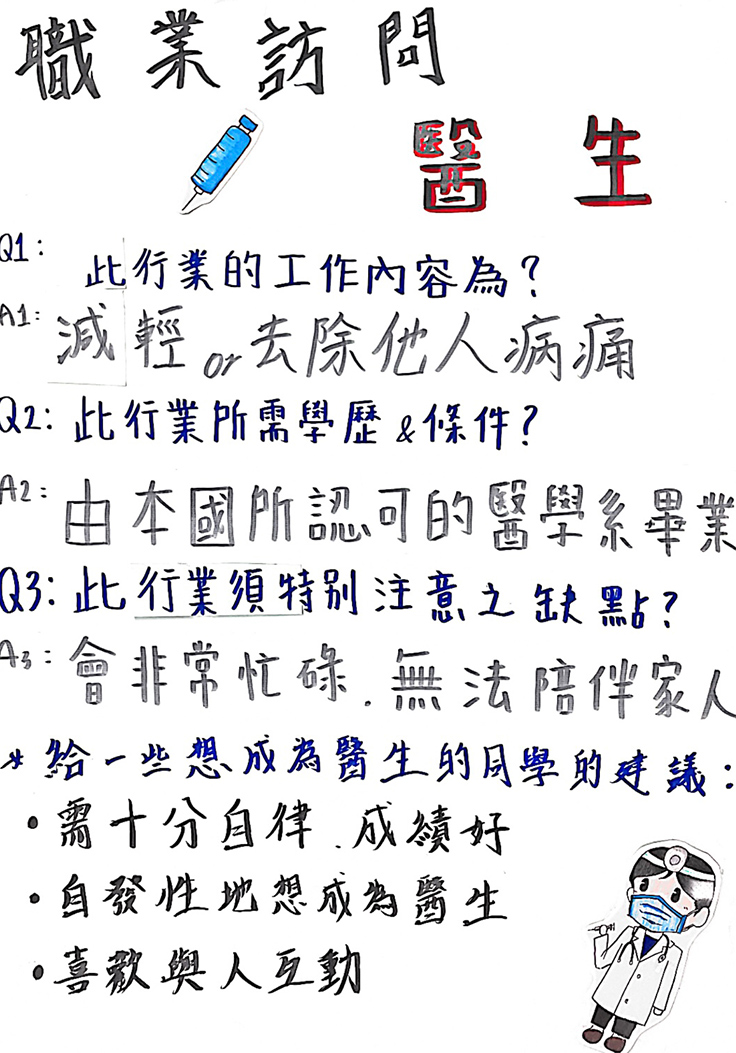 職業訪問
醫生
Q1: 此行業的工作內容為?
A1: 減輕or去除他人病痛
Q2: 此行業所需學歷&條件?
A2: 由本國所認可的醫學系畢業
Q3: 此行業須特別注意之缺點?
A3: 會非常忙碌.無法陪伴家人
* 給一些想成為醫生的同學的建議:
•需十分自律.成績好
•自發性地想成為醫生
•喜歡與人互動